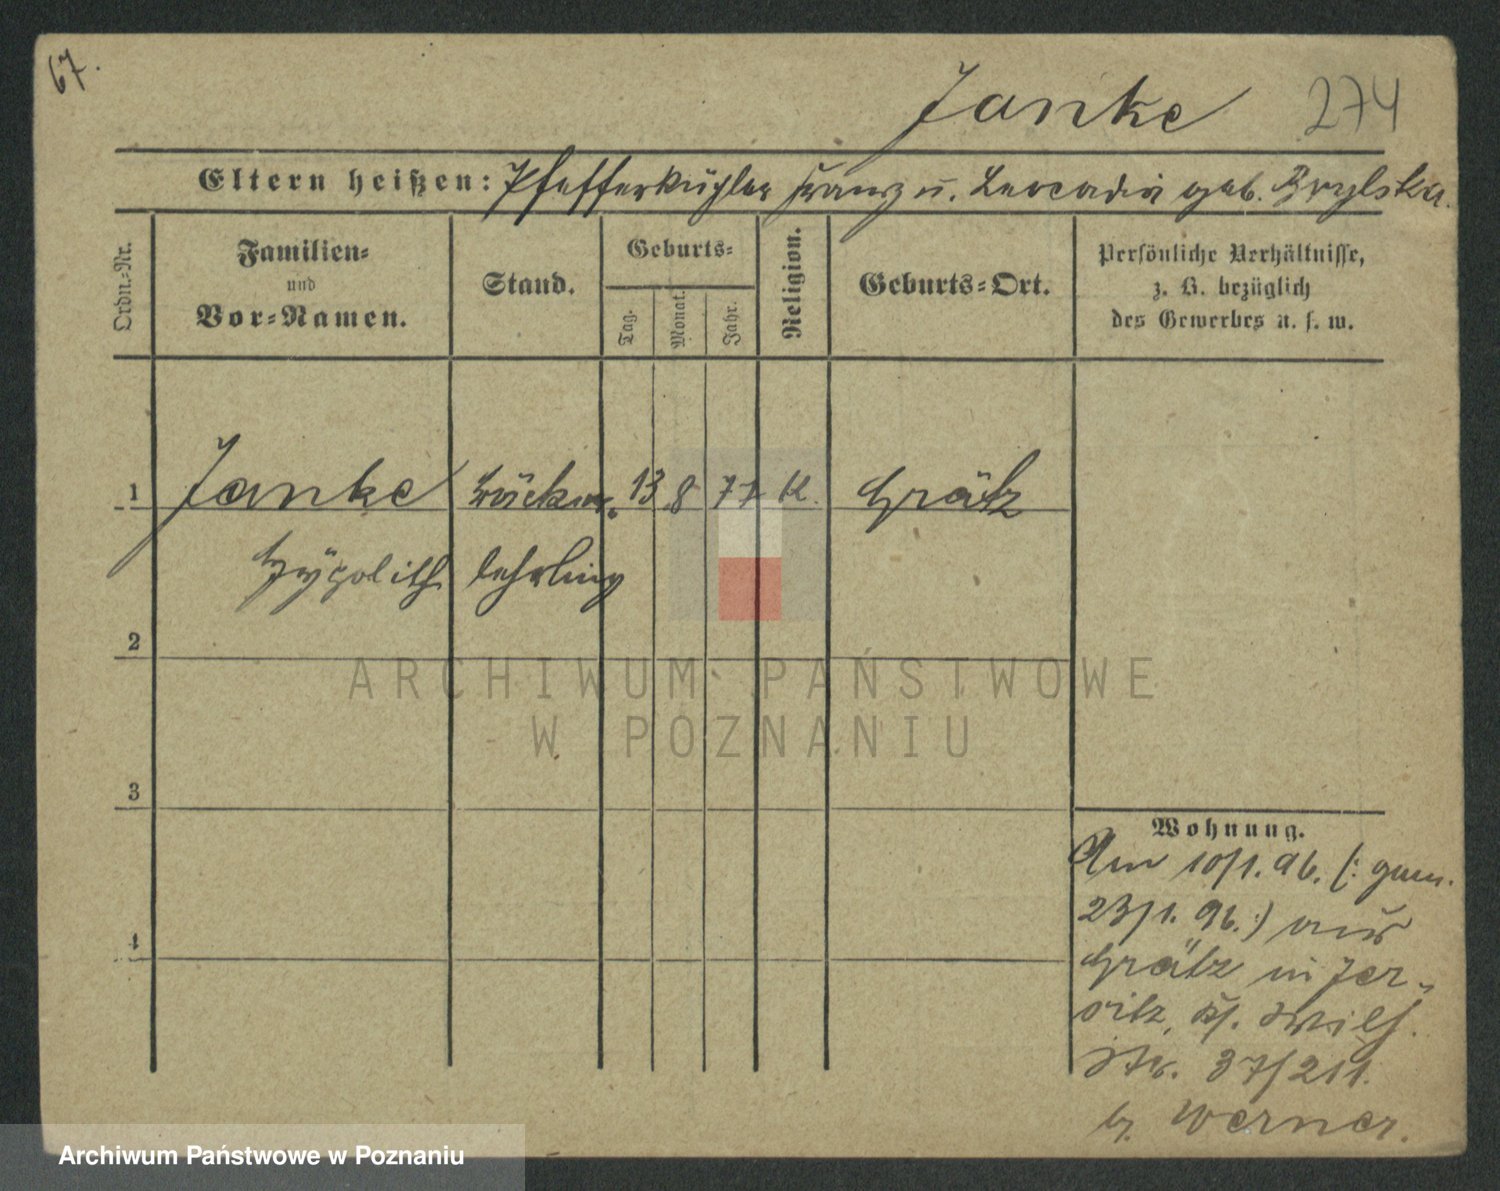 67.
Janke 274
Eltern heißen: Pfefferküchler Franz u. Leocadia geb. Brylska.
Ordn.-Nr.
Familien-
und
Vor-Namen.
Stand.
Geburts-
Tag.
Monat.
Jahr.
Religion.
Geburts-Ort.
Persönliche Verhältnisse,
z. B. bezüglich
des Gewerbes u. s. w.
1 Janke Bäcker- 13 8 77 K. Grätz
Hypolith lehrling
2
3
4
Wohnung.
Am 10/1. 96. (: gem.
23/1. 96. :) aus
Grätz in Jer-
sitz, Kr.
Str. 37/211.
b. Werner.
ARCHIWUM PAŃSTWOWE
W POZNANIU
Archiwum Państwowe w Poznaniu